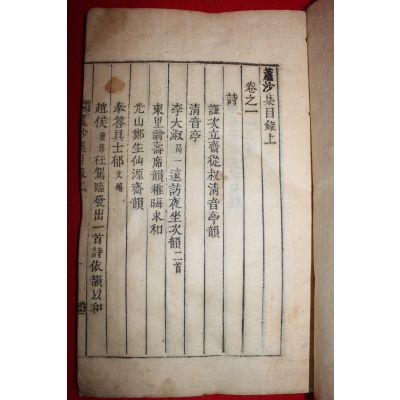 蘆沙集目錄上
卷之一
詩
謹次立齋從叔清音亭韻
清音亭
李大淑遠訪夜坐次韻二首
東里翁壽席韻稚晦求和
光山鄭生仙源齋韻
奉答具士郁
趙侯枉駕臨發出一首詩依韻以和
蘆沙集目錄上